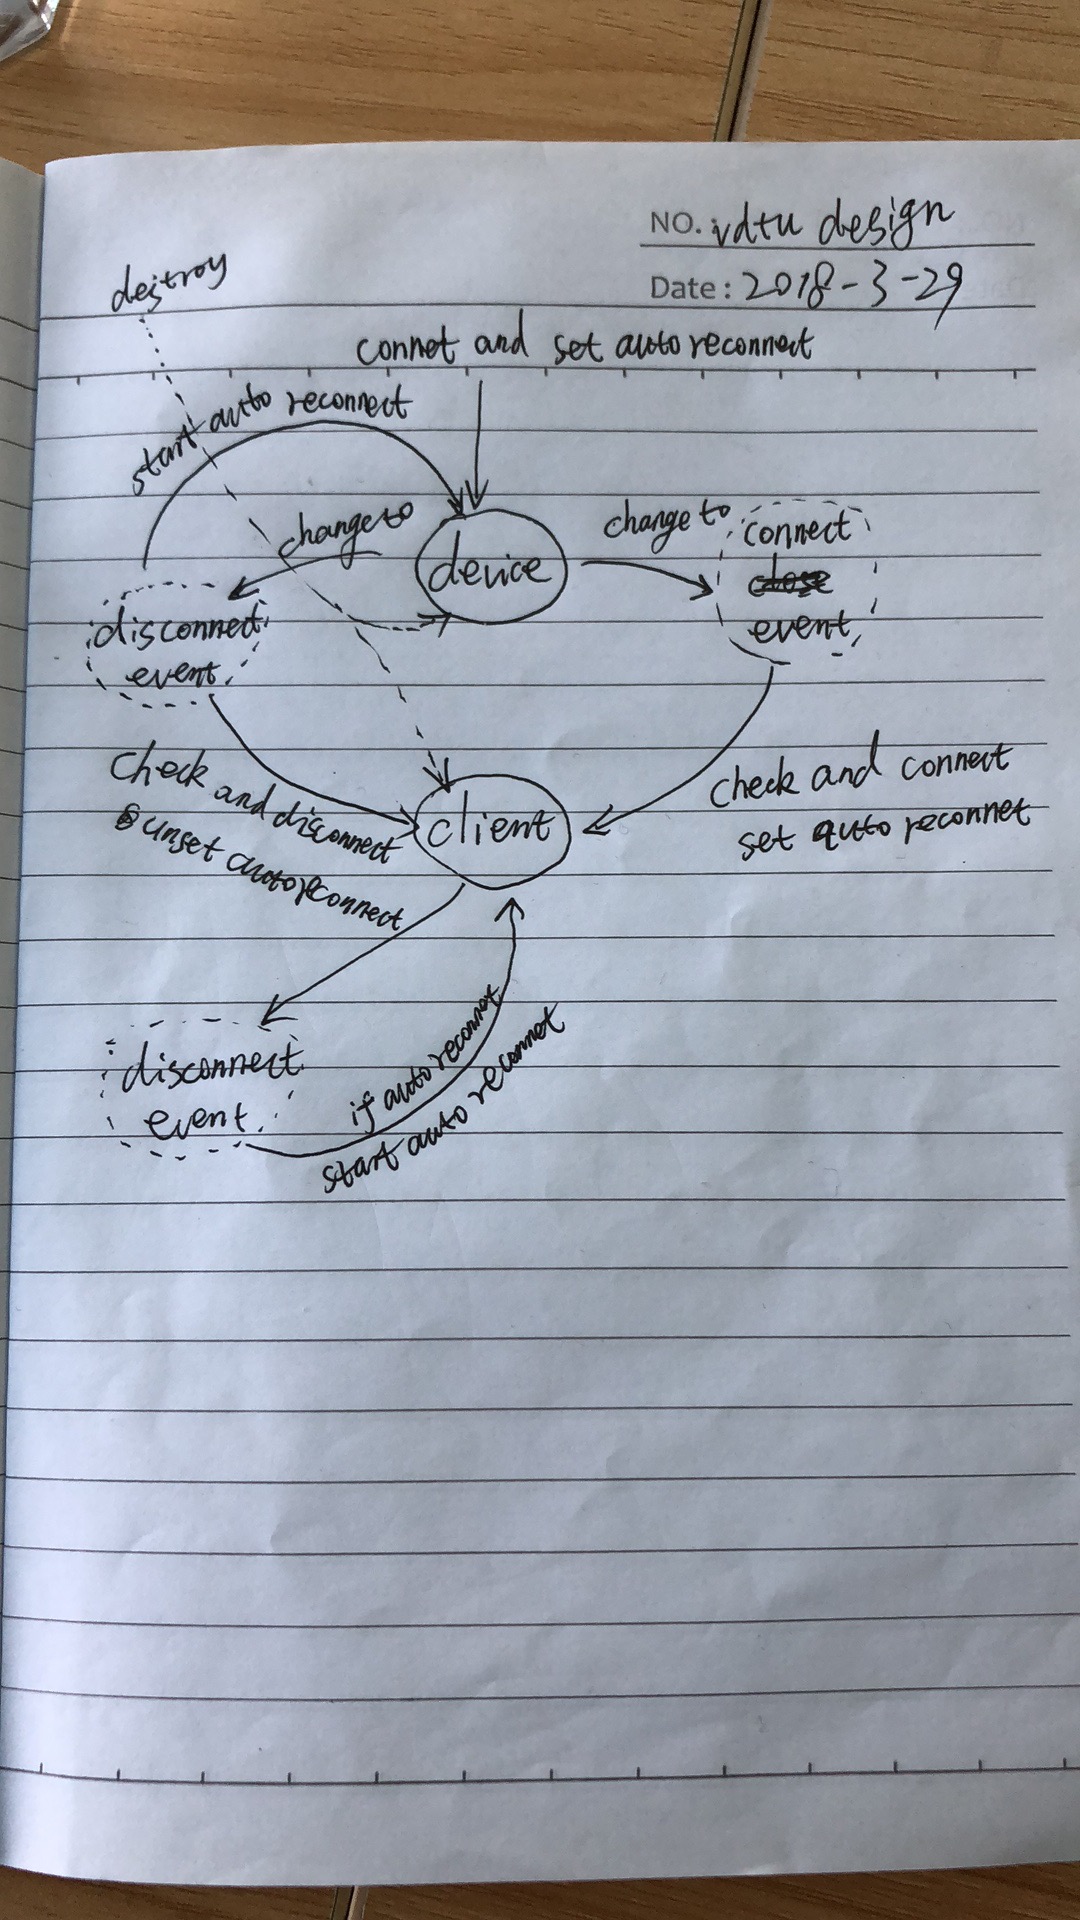 NO. vdtu design
Date: 2018-3-29
destroy
connet and set auto reconnect
start auto reconnect
change to
device
change to
connect
close
event
disconnect
event
check and disconnect
unset auto reconnect
client
check and connect
set auto reconnet
disconnect
event
if auto reconnet
start auto reconnet